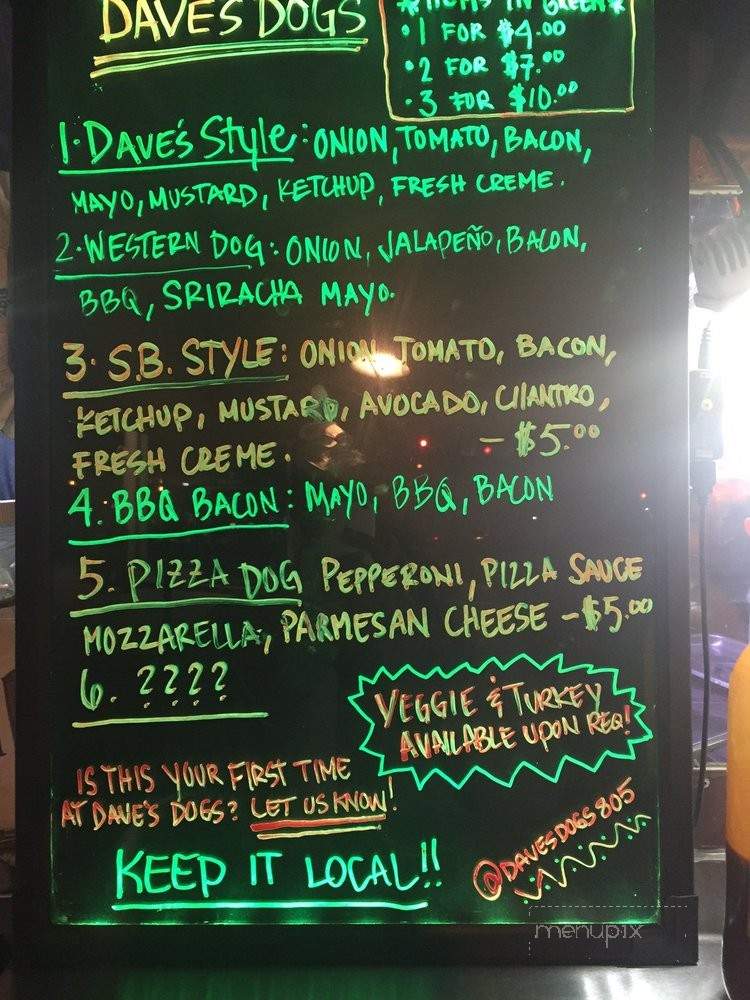 DAVE'S DOGS
*ITEMS IN GREEN*
• 1 FOR $4.00
• 2 FOR $7.00
• 3 FOR $10.00
1. DAVE'S STYLE: ONION, TOMATO, BACON,
MAYO, MUSTARD, KETCHUP, FRESH CREME.
2. WESTERN DOG: ONION, JALAPEÑO, BACON,
BBQ, SRIRACHA MAYO.
3. S.B. STYLE: ONION TOMATO, BACON,
KETCHUP, MUSTARD, AVOCADO, CILANTRO,
FRESH CREME. - $5.00
4. BBQ BACON: MAYO, BBQ, BACON
5. PIZZA DOG PEPPERONI, PIZZA SAUCE
MOZZARELLA, PARMESAN CHEESE - $5.00
6. ????
VEGGIE & TURKEY
AVAILABLE UPON REQ!
IS THIS YOUR FIRST TIME
AT DAVE'S DOGS? LET US KNOW!
@DAVESDOGS805
KEEP IT LOCAL!!
menupix